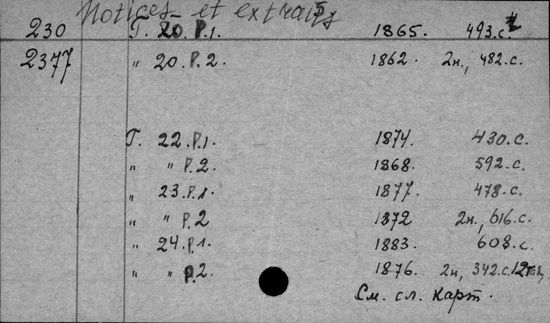 Notices et extraits
230 Т. 20. P.1. 1865. 493.с.
2377 " 20. P. 2. 1862. 2н., 482.с.
Т. 22. P.1. 1874. 430.с.
" " P.2. 1868. 592.с.
" 23.P.1. 1877. 478.с.
" " P.2 1872 2н., 616.с.
" 24.P.1. 1883. 608.с.
" " P.2. 1876. 2н, 342.с.
См. сл. карт.